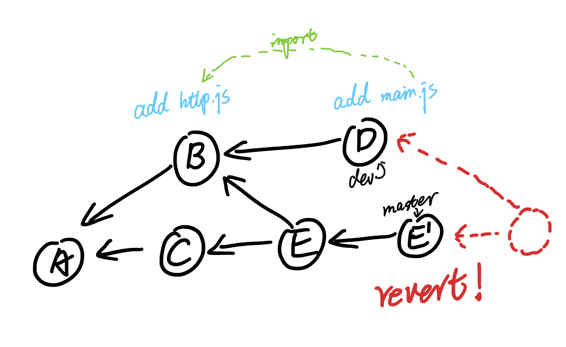 import
add http.js
add main.js
B
D
dev
master
A
C
E
E'
revert!